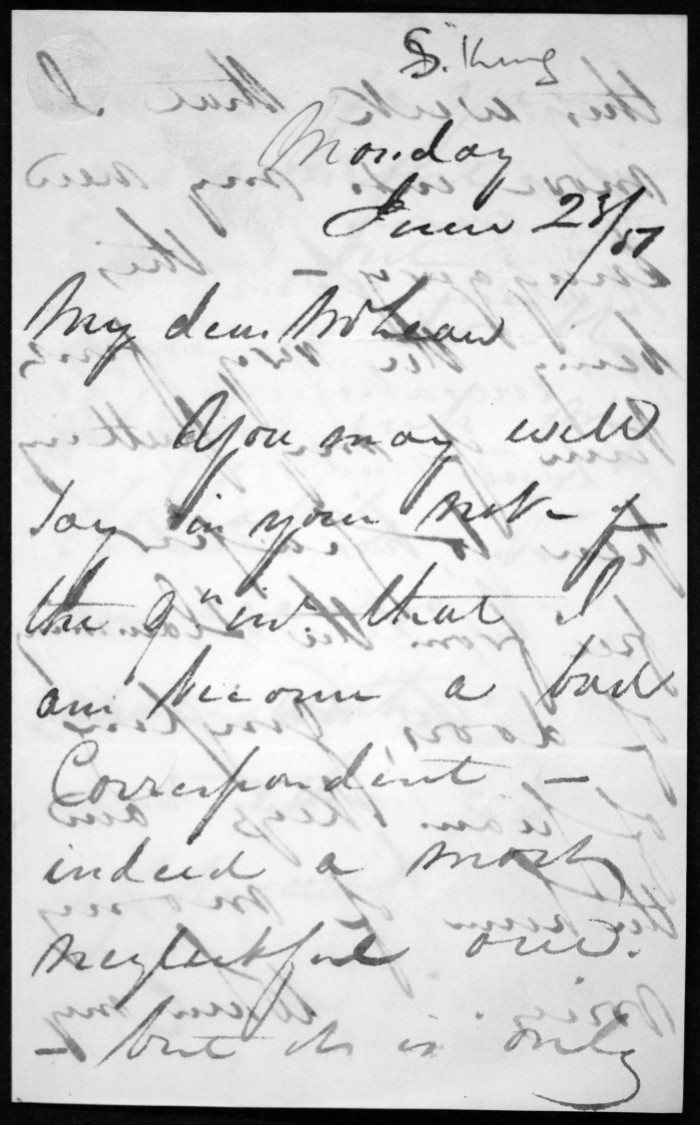 S. King
Monday
June 23/57
My dear McLean
You may well
say in your note of
the 9th inst. that I
am become a bad
Correspondent —
indeed a most
neglectful one.
— but it is only